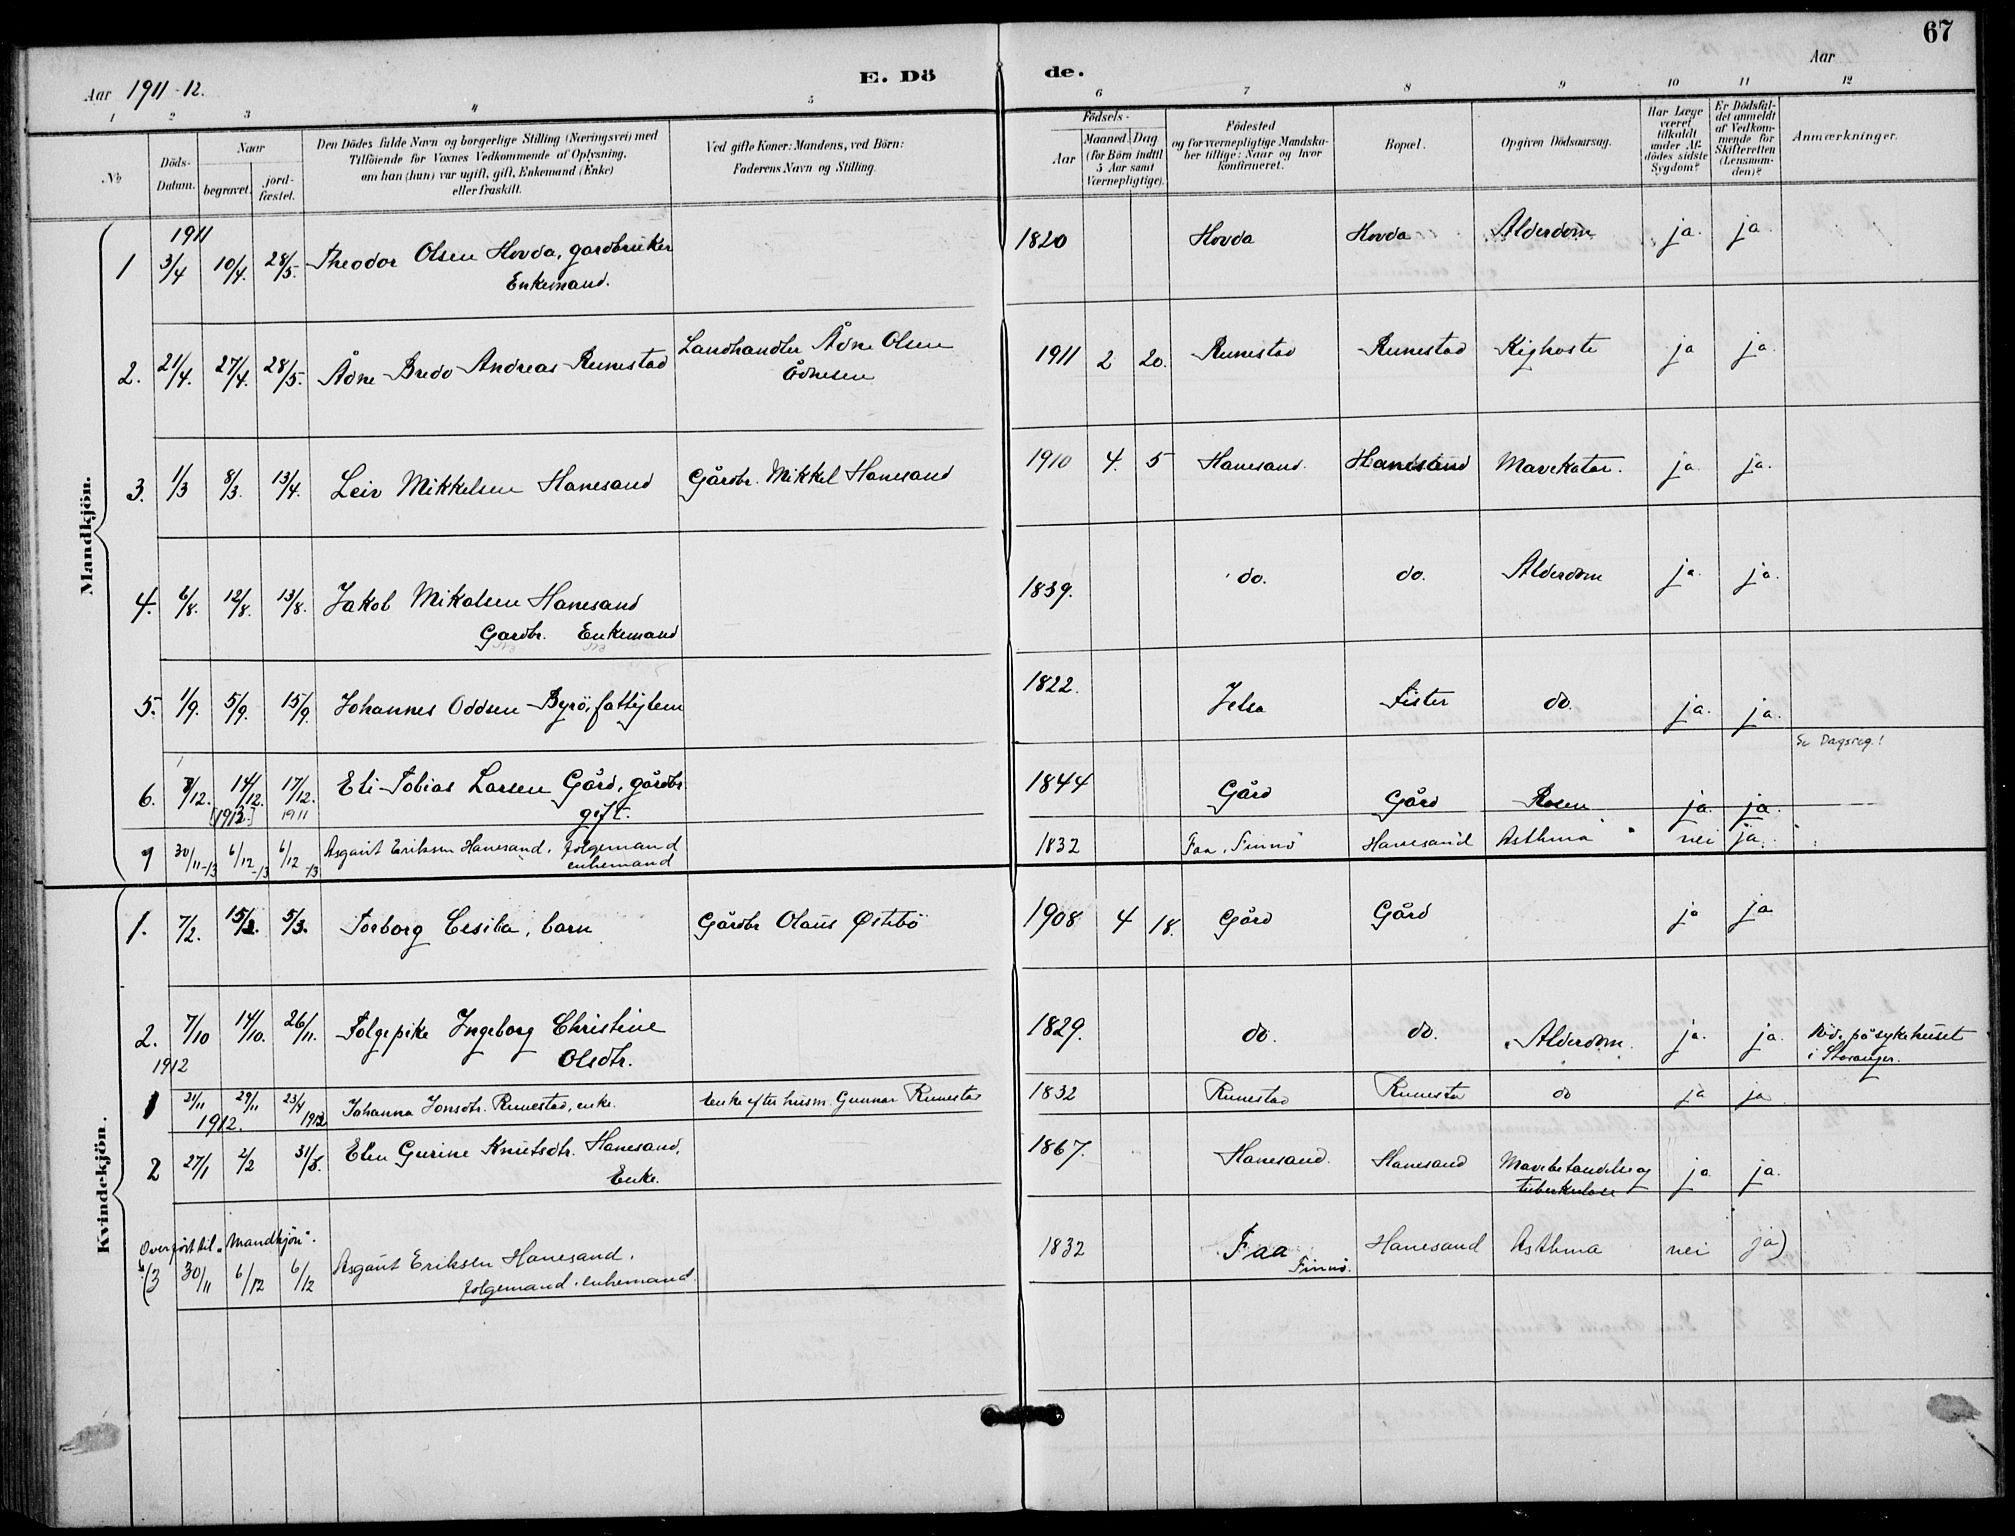 67
Aar 1911-12.
E. Dö
de.
Aar
1 2 3 4 5 6 7 8 9 10 11 12
№
Döds-
Datum.
Naar
begravet.
jord-
fæstet.
Den Dödes fulde Navn og borgerlige Stilling (Næringsvei) med
Tilföiende for Voxnes Vedkommende af Oplysning,
om han (hun) var ugift, gift, Enkemand (Enke)
eller fraskilt.
Ved gifte Koner: Mandens, ved Börn:
Faderens Navn og Stilling.
Födsels-
Aar
Maaned. Dag
(for Börn indtil
5 Aar samt
Værnepligtige).
Födested
og for værnepligtige Mandska-
ber tillige: Naar og hvor
konfirmeret.
Bopæl.
Opgiven Dödsaarsag.
Har Læge
været
tilkaldt
under Af-
dödes sidste
Sygdom?
Er Dödsfal-
det anmeldt
af Vedkom-
mende for
Skifteretten
(Lensman-
den)?
Anmærkninger.
Mandkjön.
1911
1 3/4 10/4. 28/5. Theodor Olsen Hovda, gardbruker 1820 Hovda Hovda Alderdom ja. ja
Enkemand.
2. 21/4. 27/4. 28/5. Ådne Bredo Andreas Runestad Landhandler Ådne Olsen 1911 2 20. Runestad Runestad Kighoste ja ja.
Ådnesen
3. 1/3 8/3. 13/4. Leiv Mikkelsen Hanesand Gårdbr. Mikkel Hanesand 1910 4. 5 Hanesand. Hanesand Mavekatar. ja ja.
4. 6/8. 12/8. 13/8. Jakob Mikalsen Hanesand 1839. do. do. Alderdom ja. ja.
Gardbr. Enkemand
5. 1/9. 5/9. 15/9. Johannes Oddsen Byrö, fattiglem 1822. Jelsa Fister do. ja. ja.
Se Dagsreg.!
6. /12. 14/12. 17/12. Eli Tobias Larsen Gård, gårdbr 1844 Gård Gård Rosen ja. ja.
[1912.] 1911 gift.
7 30/11-13 6/12-13 6/12-13 Asgaut Eriksen Hanesand, folgemand 1832 Faa, Finnö Hanesand Asthma nei ja.
enkemand
Kvindekjön.
1. 7/2. 15/2. 5/3. Torborg Cesilia, barn Gårdbr Olaus Østebö 1908 4 18. Gård Gård ja ja
2. 7/10 14/10. 26/11. Folgepike Ingeborg Christine 1829. do. do. Alderdom. ja. ja. Död på sykehuset
Olsdtr. i Stavanger.
1912
1 21/11 29/11 23/4 Johanna Jonsdtr. Runestad, enke. Enke efter husm. Gunnar Runestad 1832 Runestad Runestad do ja ja
1912. 1912
2 27/1 2/2 31/3. Elen Gurine Knutsdtr. Hanesand, 1867. Hanesand. Hanesand Mavebetændelse og ja ja.
Enke. tuberkulose
Overfört til "Mandkjön".
(3 30/11 6/12 6/12 Asgaut Eriksen Hanesand. 1832 Faa Hanesand Asthma nei ja)
folgemand. enkemand Finnö.